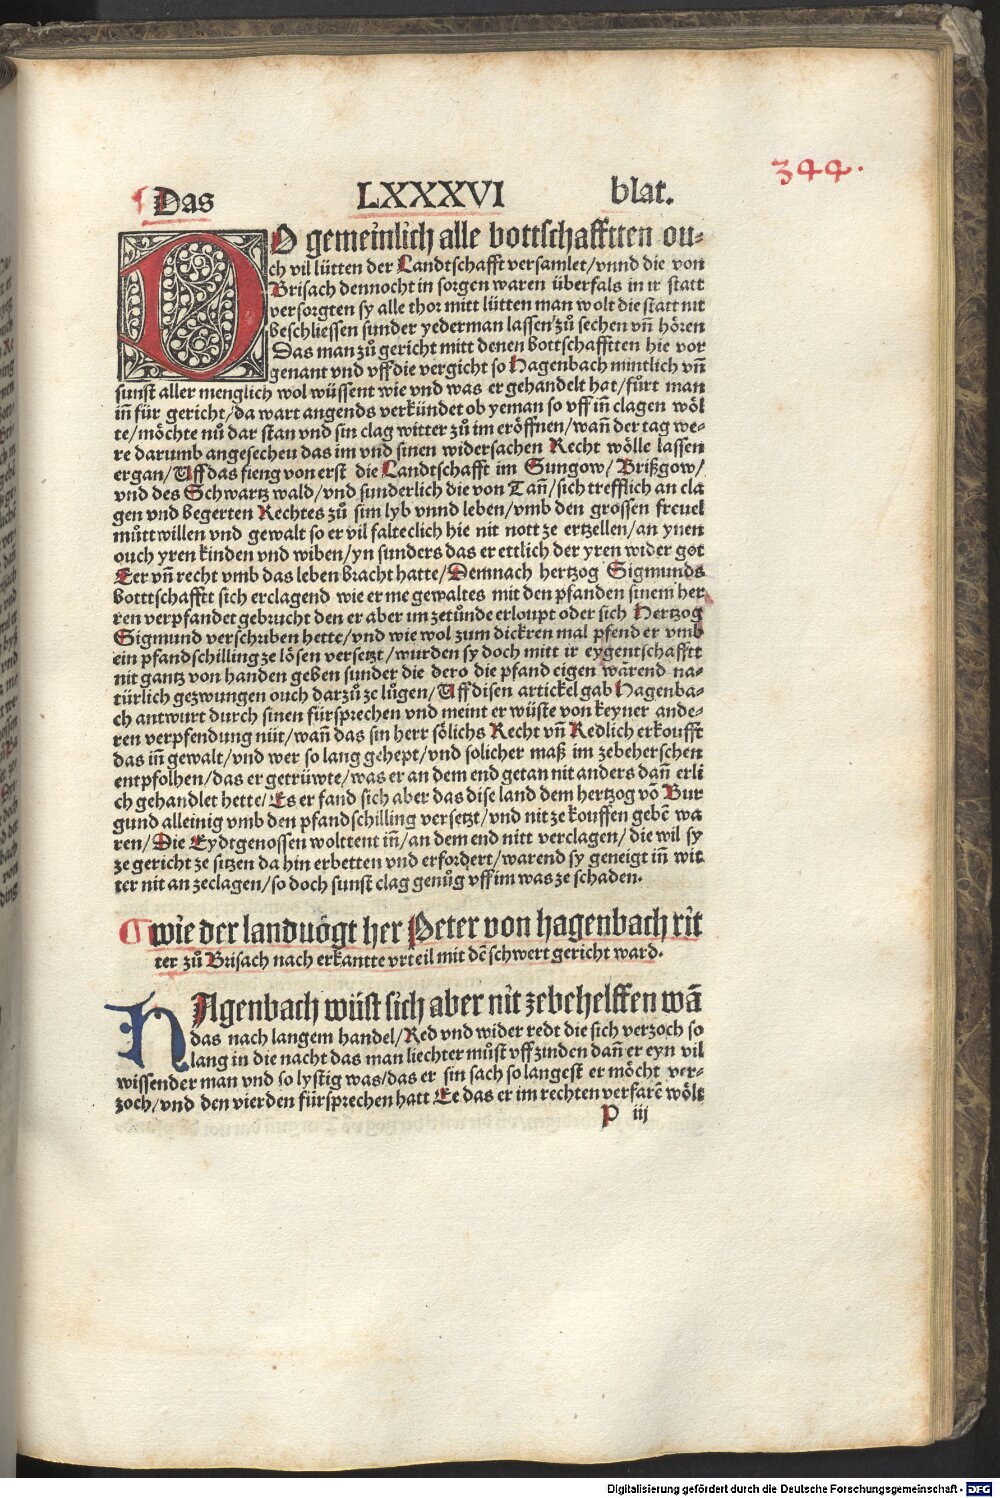 344.
¶ Das LXXXVI blat.
DO gemeinlich alle bottschafftten ou-
ch vil lütten der Landtschafft versamlet/vnnd die von
Brisach dennocht in sorgen waren überfals in ir statt
versorgten sy alle thor mitt lütten man wolt die statt nit
beschliessen sunder yederman lassen zů sechen vn̄ hören
Das man zů gericht mitt denen bottschafftten hie vor
genant vnd vff die vergicht so Hagenbach mintlich vn̄
sunst aller menglich wol wüssent wie vnd was er gehandelt hat/fürt man
in̄ für gericht/da wart angends verkündet ob yeman so vff in̄ clagen wöl
te/möchte nů dar stan vnd sin clag witter zů im eröffnen/wan̄ der tag we-
re darumb angesechen das im vnd sinen widersachen Recht wölle lassen
ergan/Uff das fieng von erst die Landtschafft im Sungow/Brißgow/
vnd des Schwartz wald/vnd sunderlich die von Tan̄/sich trefflich an cla
gen vnd begerten Rechtes zů sim lyb vnnd leben/vmb den grossen freuel
můttwillen vnd gewalt so er vil falteclich hie nit nott ze ertzellen/an ynen
ouch yren kinden vnd wiben/yn sunders das er ettlich der yren wider got
Eer vn̄ recht vmb das leben bracht hatte/Demnach hertzog Sigmunds
botttschafftt sich erclagend wie er me gewaltes mit den pfanden sinem her
ren verpfandet gebrucht den er aber im zetůnde erloupt oder sich Hertzog
Sigmund verschriben hette/vnd wie wol zum dickren mal pfend er vmb
ein pfandschilling ze lösen versetzt/wurden sy doch mitt ir eygentschafftt
nit gantz von handen geben sunder die dero die pfand eigen wärend na-
türlich gezwungen ouch darzů ze lůgen/Uff disen artickel gab Hagenba-
ch antwurt durch sinen fürsprechen vnd meint er wüste von keyner ande-
ren verpfendung nüt/wan̄ das sin herr sölichs Recht vn̄ Redlich erkoufft
das in̄ gewalt/vnd wer so lang gehept/vnd solicher maß im zebeherschen
entpfolhen/das er getrüwte/was er an dem end getan nit anders dan̄ erli
ch gehandlet hette/Es er fand sich aber das dise land dem hertzog vō Bur
gund alleinig vmb den pfandschilling versetzt/vnd nit ze kouffen gebē wa
ren/Die Eydtgenossen wolttent in̄/an dem end nitt verclagen/die wil sy
ze gericht ze sitzen da hin erbetten vnd erfordert/warend sy geneigt in̄ wit
ter nit an zeclagen/so doch sunst clag genůg vff im was ze schaden.
¶ wie der landuögt her Peter von hagenbach rit
ter zů Brisach nach erkantte vrteil mit dē schwert gericht ward.
HAgenbach wüst sich aber nit zebehelffen wā
das nach langem handel/Red vnd wider redt die sich verzoch so
lang in die nacht das man liechter můst vff zinden dan̄ er eyn vil
wissender man vnd so lystig was/das er sin sach so langest er möcht ver-
zoch/vnd den vierden fürsprechen hatt Ee das er im rechten verfarē wölt
P iij
Digitalisierung gefördert durch die Deutsche Forschungsgemeinschaft - DFG